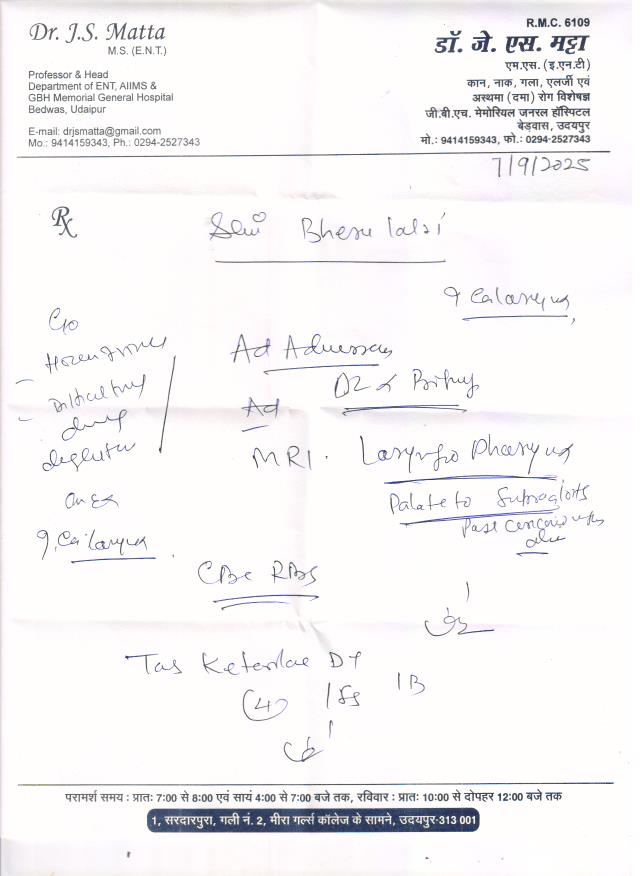 Dr. J.S. Matta
M.S. (E.N.T.)
Professor & Head
Department of ENT, AIIMS &
GBH Memorial General Hospital
Bedwas, Udaipur
E-mail: drjsmatta@gmail.com
Mo.: 9414159343, Ph.: 0294-2527343
R.M.C. 6109
डॉ. जे. एस. मट्टा
एम.एस. (इ.एन.टी)
कान, नाक, गला, एलर्जी एवं
अस्थमा (दमा) रोग विशेषज्ञ
जी.बी.एच. मेमोरियल जनरल हॉस्पिटल
बेड़वास, उदयपुर
मो.: 9414159343, फो.: 0294-2527343
7/9/2025
Rx
Bheru lalji
? Ca larynx
C/o
Hoarseness
Difficulty
during
deglutition
O/E
? Ca larynx
Ad
Biopsy
Ad
MRI. Laryngo Pharynx
Palate to Subglottis
CBC RBS
Tab Ketorolac DT
परामर्श समय : प्रातः 7:00 से 8:00 एवं सायं 4:00 से 7:00 बजे तक, रविवार : प्रातः 10:00 से दोपहर 12:00 बजे तक
1, सरदारपुरा, गली नं. 2, मीरा गर्ल्स कॉलेज के सामने, उदयपुर-313 001